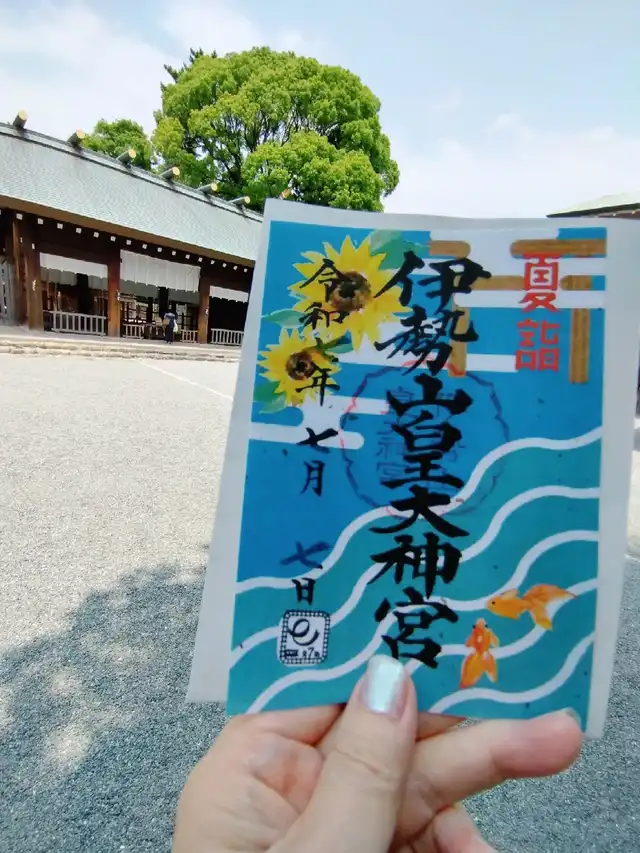 夏詣
伊勢山皇大神宮
令和七年七月七日